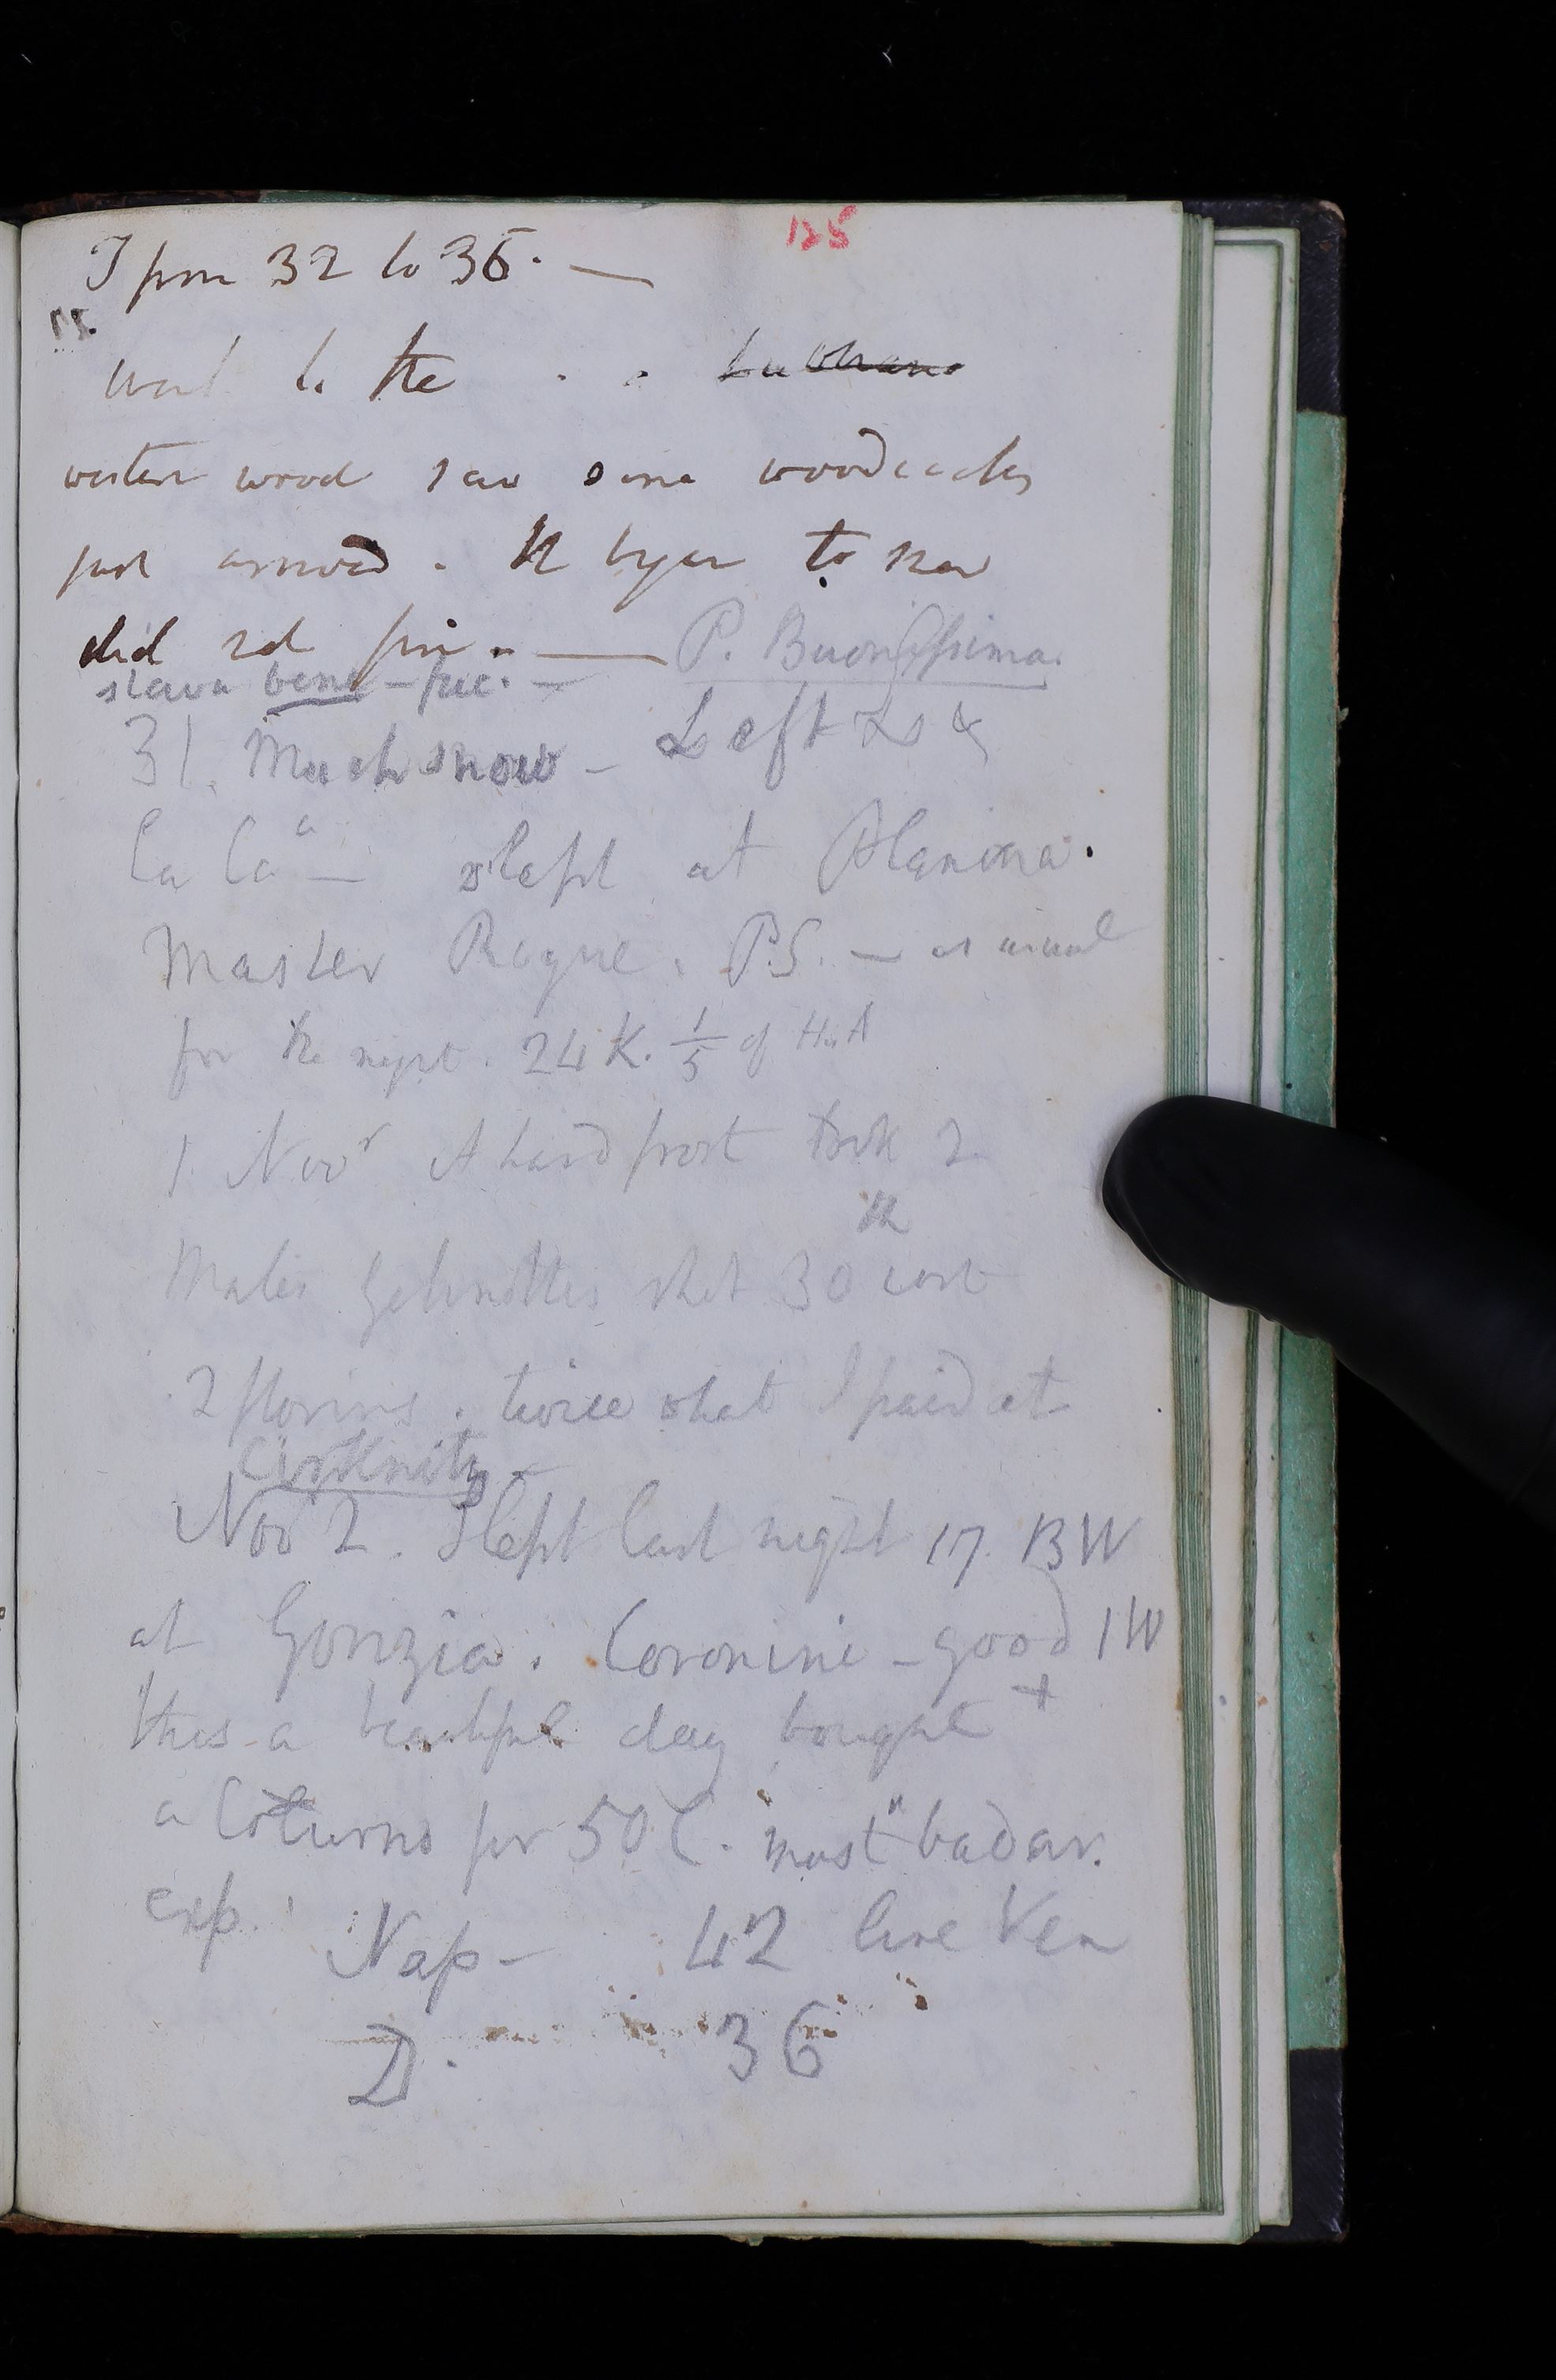 125
T from 32 to 36. —
went to the
western wood saw some woodcocks
just arrived. It began to snow
did not fire. — P. Buonissima.
slava bene
31. Much snow – Left L &
slept at Planina.
Master Rogue. P.S. — as usual
for the night. 24 K. 1/5 of
1 Novr A hard frost took 2
Males shot 30 cost
2 florins. twice what I paid at
Cirknitz –
Nov 2. Slept last night 17. BW
at Gorizia. Coronini – good 1 W
this a beautiful day bought +
a Coturno for 50 C. most bad ar.
exp.
Nap – 42 lire Ven
D. 36